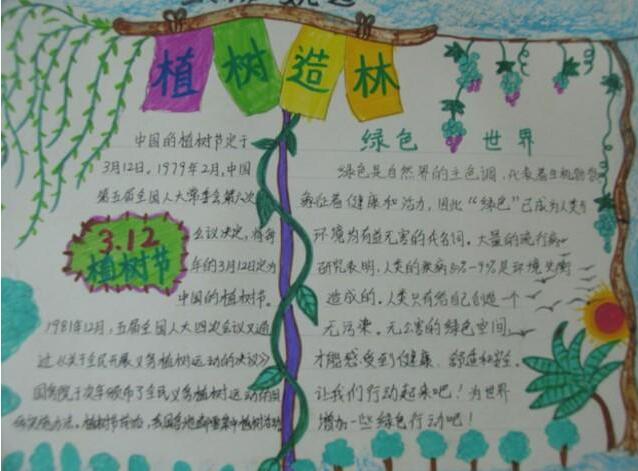 植树造林
中国的植树节定于
3月12日。1979年2月,中国
第五届全国人大常委会第六次
会议决定,将每
年的3月12日定为
中国的植树节。
3.12
植树节
1981年12月,五届全国人大四次会议又通
过《关于全民开展义务植树运动的决议》
国务院于次年颁布了全民义务植树运动的
实施办法。植树节前后,我国各地都要集中植树活动
绿色世界
绿色是自然界的主色调,代表着生机勃勃
象征着健康和活力,因此“绿色”已成为人类与
环境为有益无害的代名词。大量的流行病
研究表明,人类的疾病
造成的。人类只有给自己创造一个
无污染。无公害的绿色空间,
才能感受到健康、舒适和安全。
让我们行动起来吧!为世界
增加一些绿色行动吧!